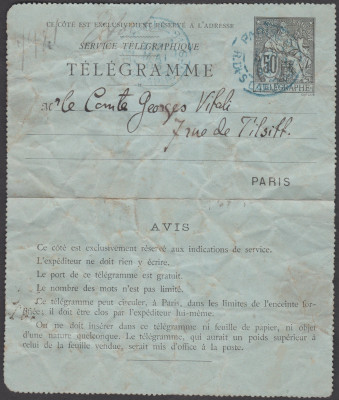 CE CÔTÉ EST EXCLUSIVEMENT RÉSERVÉ A L'ADRESSE
SERVICE TÉLÉGRAPHIQUE
TÉLÉGRAMME
50
TÉLÉGRAPHE
le Comte Georges Vitali
7 rue de Tilsitt.
PARIS
AVIS
Ce côté est exclusivement réservé aux indications de service.
L'expéditeur ne doit rien y écrire.
Le port de ce télégramme est gratuit.
Le nombre des mots n'est pas limité.
Ce télégramme peut circuler, à Paris, dans les limites de l'enceinte for-
tifiée; il doit être clos par l'expéditeur lui-même.
On ne doit insérer dans ce télégramme ni feuille de papier, ni objet
d'une nature quelconque. Le télégramme, qui aurait un poids supérieur à
celui de la feuille vendue, serait mis d'office à la poste.